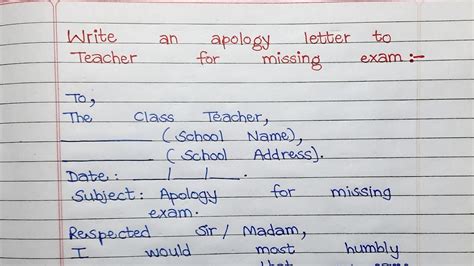 Write an apology letter to
Teacher for missing exam:-
To,
The Class Teacher,
________ (School Name),
________ (School Address).
Date: __/__/__.
Subject: Apology for missing
exam.
Respected Sir/Madam,
I would most humbly
that